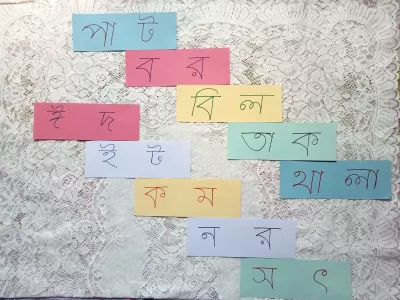 পা ট
ব র
বিল
ঈ দ
তা ক
ই ট
থা লা
ক ম
ন র
স ৎ